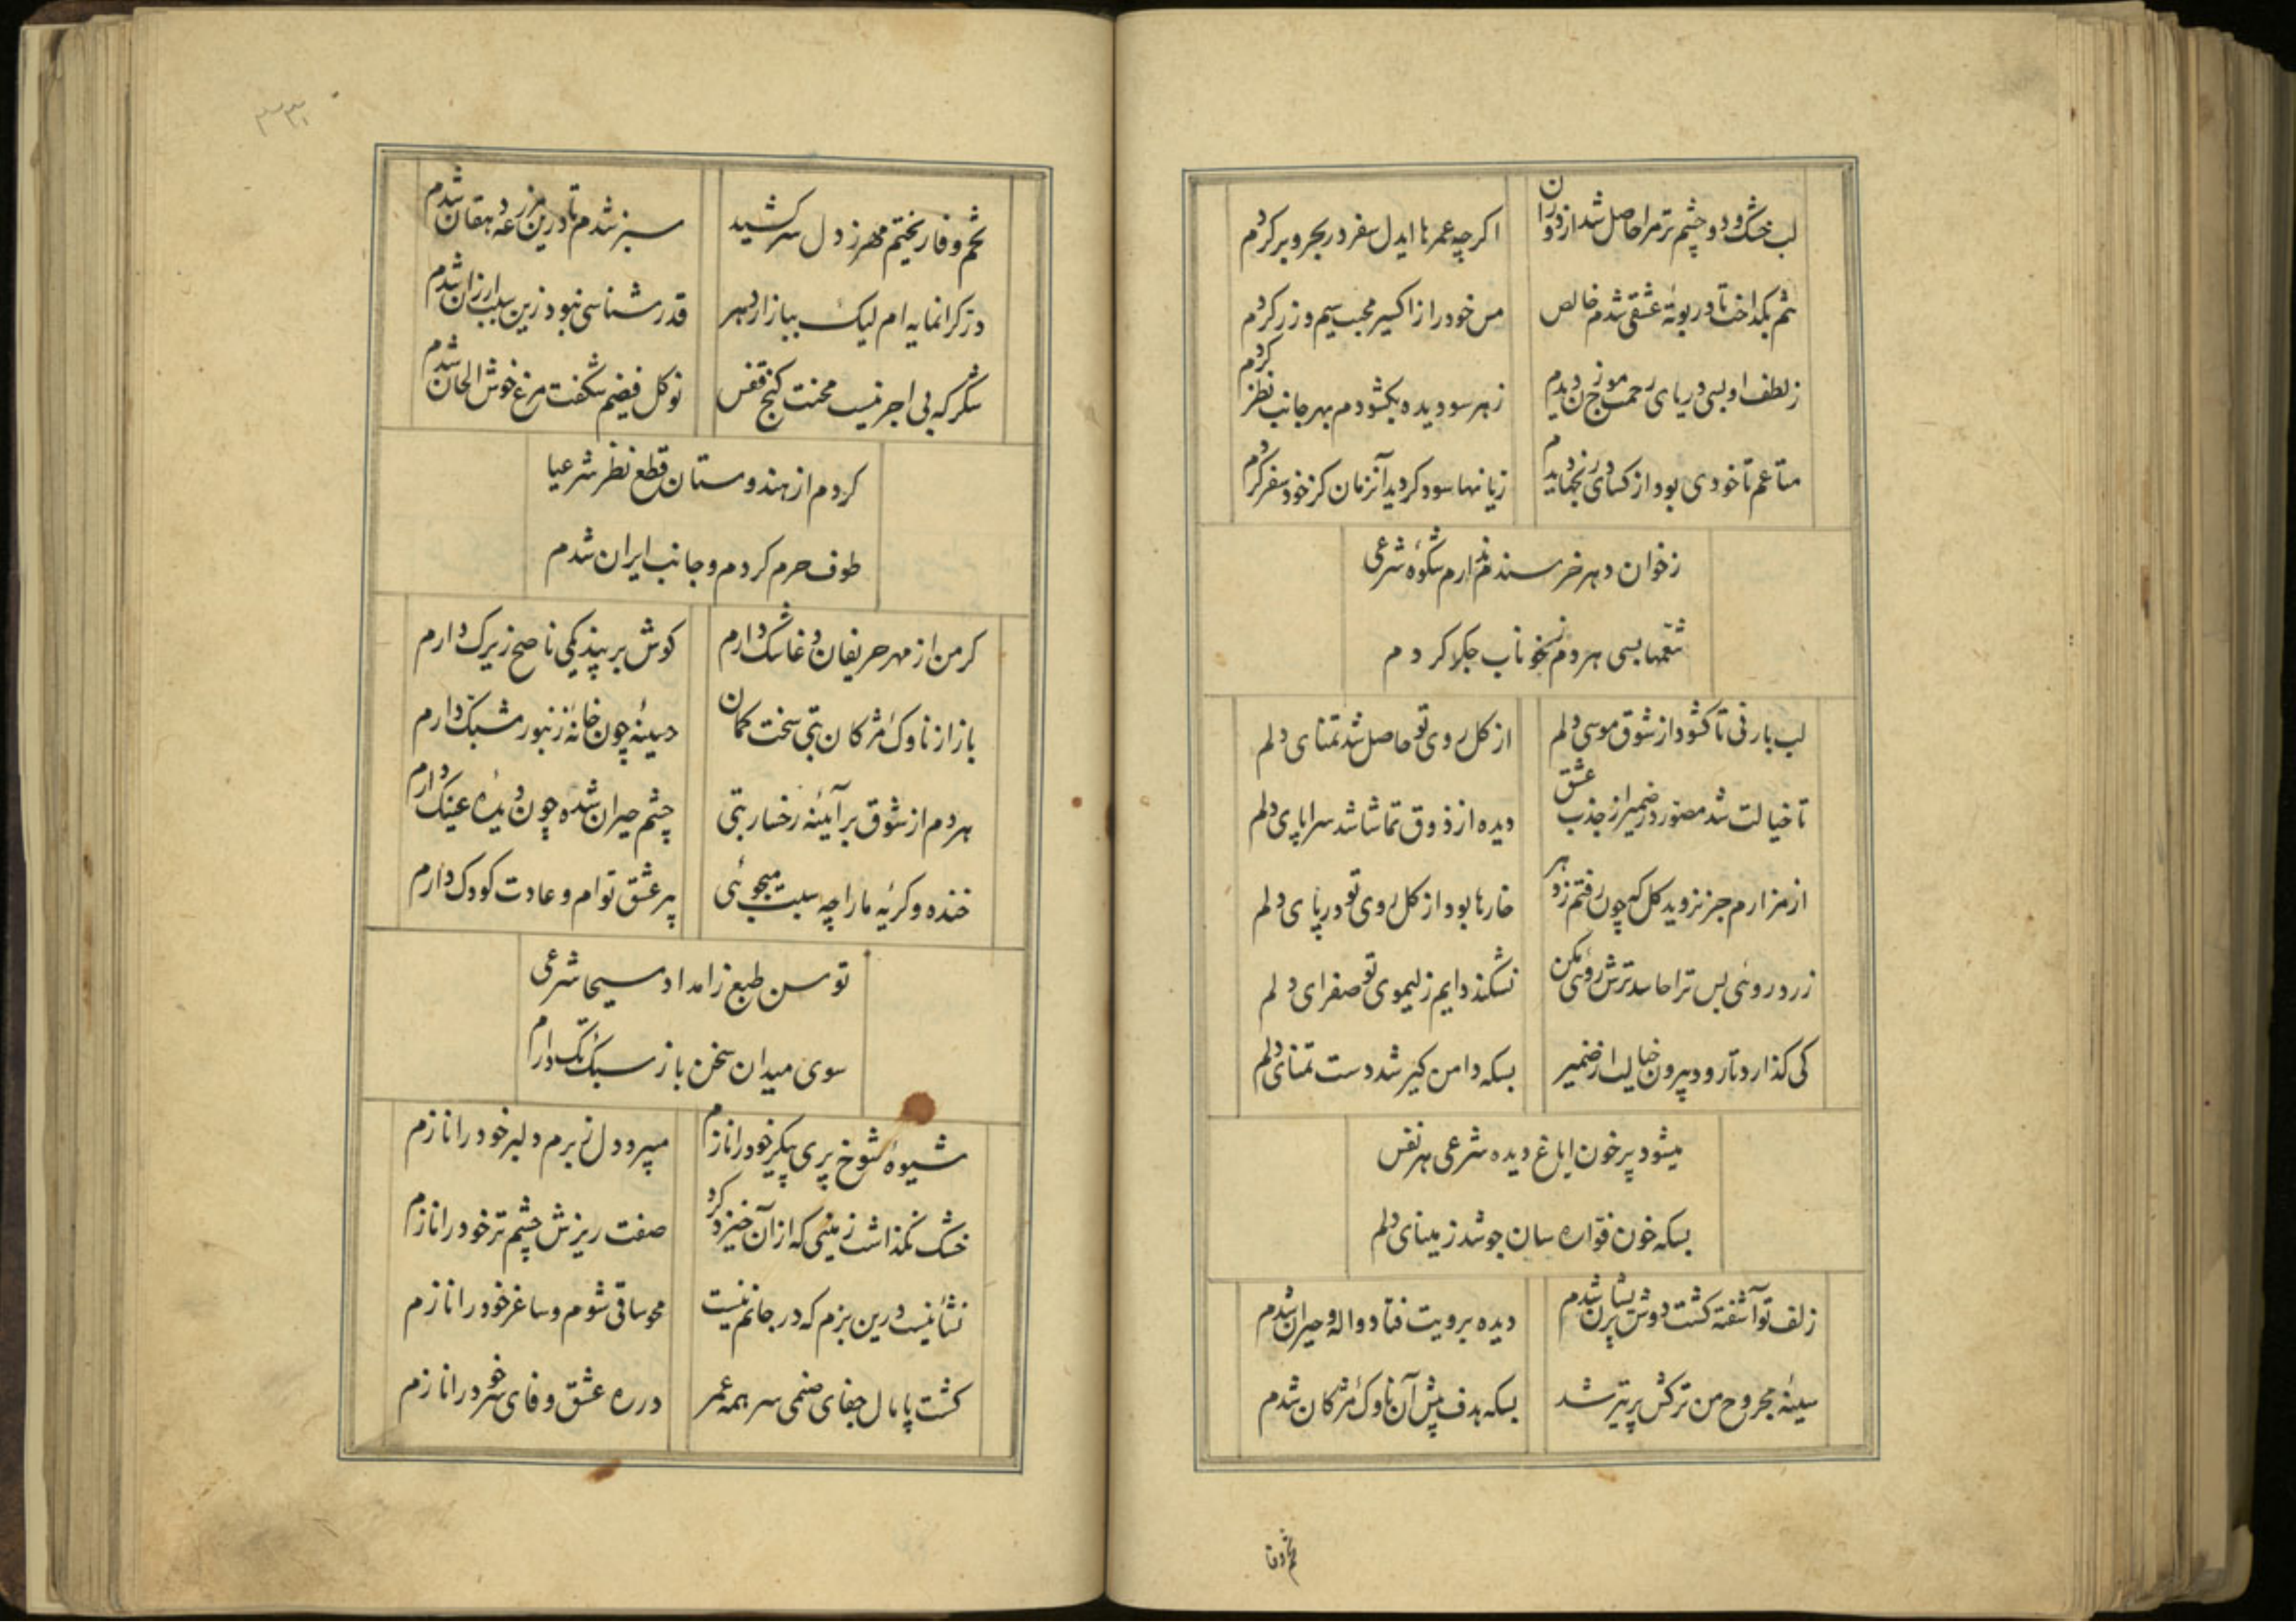 لب خشک و دو چشم تر مرا حاصل شد از دوران
اکرچه عمرها ایدل سفر در بحر و بر کردم
تنم بکداخت تا در بوتهٔ عشقی شدم خالص
من خود را از اکسیر محبت سیم و زر کردم
ز لطف او بسی دریای رحمت موج زن دیدم
زهر سو دیده بکشودم بهر جانب نظر کردم
متاعم تا خودی بود از کسادی رنجها دیدم
زیانها سود کردید آنزمان کز خود سفر کردم
ز خوان دهر خرسندم ندارم شکوهٔ شرعی
تنعمها بسی هر دم ز خوناب جکر کردم
لب بارنی تا کشود از شوق موسی دلم
از کل روی تو حاصل شد تمنای دلم
تا خیالت شد مصور در ضمیر از جذب عشق
دیده از ذوق تماشا شد سراپای دلم
از مزارم جز نروید کل که چون رفتم ز دهر
خارها بود از کل روی تو در پای دلم
زرد روئی بس ترا حاسد ترش روئی مکن
نشکند دایم ز لیموی تو صفرای دلم
کی کذارد تا رود بیرون خیالت از ضمیر
بسکه دامن کیر شد دست تمنای دلم
میشود پر خون ایاغ دیده شرعی هر نفس
بسکه خون فواره سان جوشد ز مینای دلم
زلف تو آشفته کشت دوش پریشان شدم
دیده برویت فتاد واله و حیران شدم
سینهٔ مجروح من ترکش پر تیر شد
بسکه هدف پیش آن ناوک مژکان شدم
تخم وفا
۳۳۱
تخم وفا ریختم مهر ز دل سر کشید
سبز شدم تا درین مزرعه دهقان شدم
در کرانمایه ام لیک ببازار دهر
قدر شناسی نبود زین سبب ارزان شدم
شکر که بی اجر نیست محنت کنج قفس
نوکل فیضم شکفت مرغ خوش الحان شدم
کردم از هندوستان قطع نظر شرعیا
طوف حرم کردم و جانب ایران شدم
کر من از مهر حریفان دغا شک دارم
کوش بر پند یکی ناصح زیرک دارم
باز از ناوک مژکان بتی سخت کمان
سینه چون خانهٔ زنبور مشبک دارم
هر دم از شوق بر آئینه رخسار بتی
چشم حیران شده چون دیدهٔ عینک دارم
خنده و کریه ما را چه سبب میجوئی
پیر عشق توام و عادت کودک دارم
توسن طبع ز امداد مسیحا شرعی
سوی میدان سخن باز سبک تک دارم
شیوهٔ شوخ پری پیکر خود را نازم
میبرد دل ز برم دلبر خود را نازم
خشک نکذاشت زمینی که از آن خیزد کرد
صفت ریزش چشم تر خود را نازم
نشأ نیست درین بزم که در جانم نیست
محو ساقی شوم و ساغر خود را نازم
کشت پامال جفای صنمی سر همه عمر
در ره عشق وفای سر خود را نازم